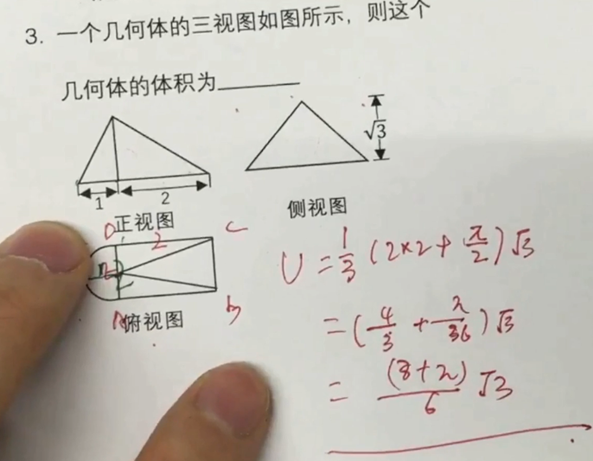 3. 一个几何体的三视图如图所示，则这个
几何体的体积为
√3
1
2
正视图
侧视图
D
2
C
2
A
b
俯视图
V = 1/3 (2×2 + π/2) √3
= (4/3 + π/36) √3
= (8+π)/6 √3